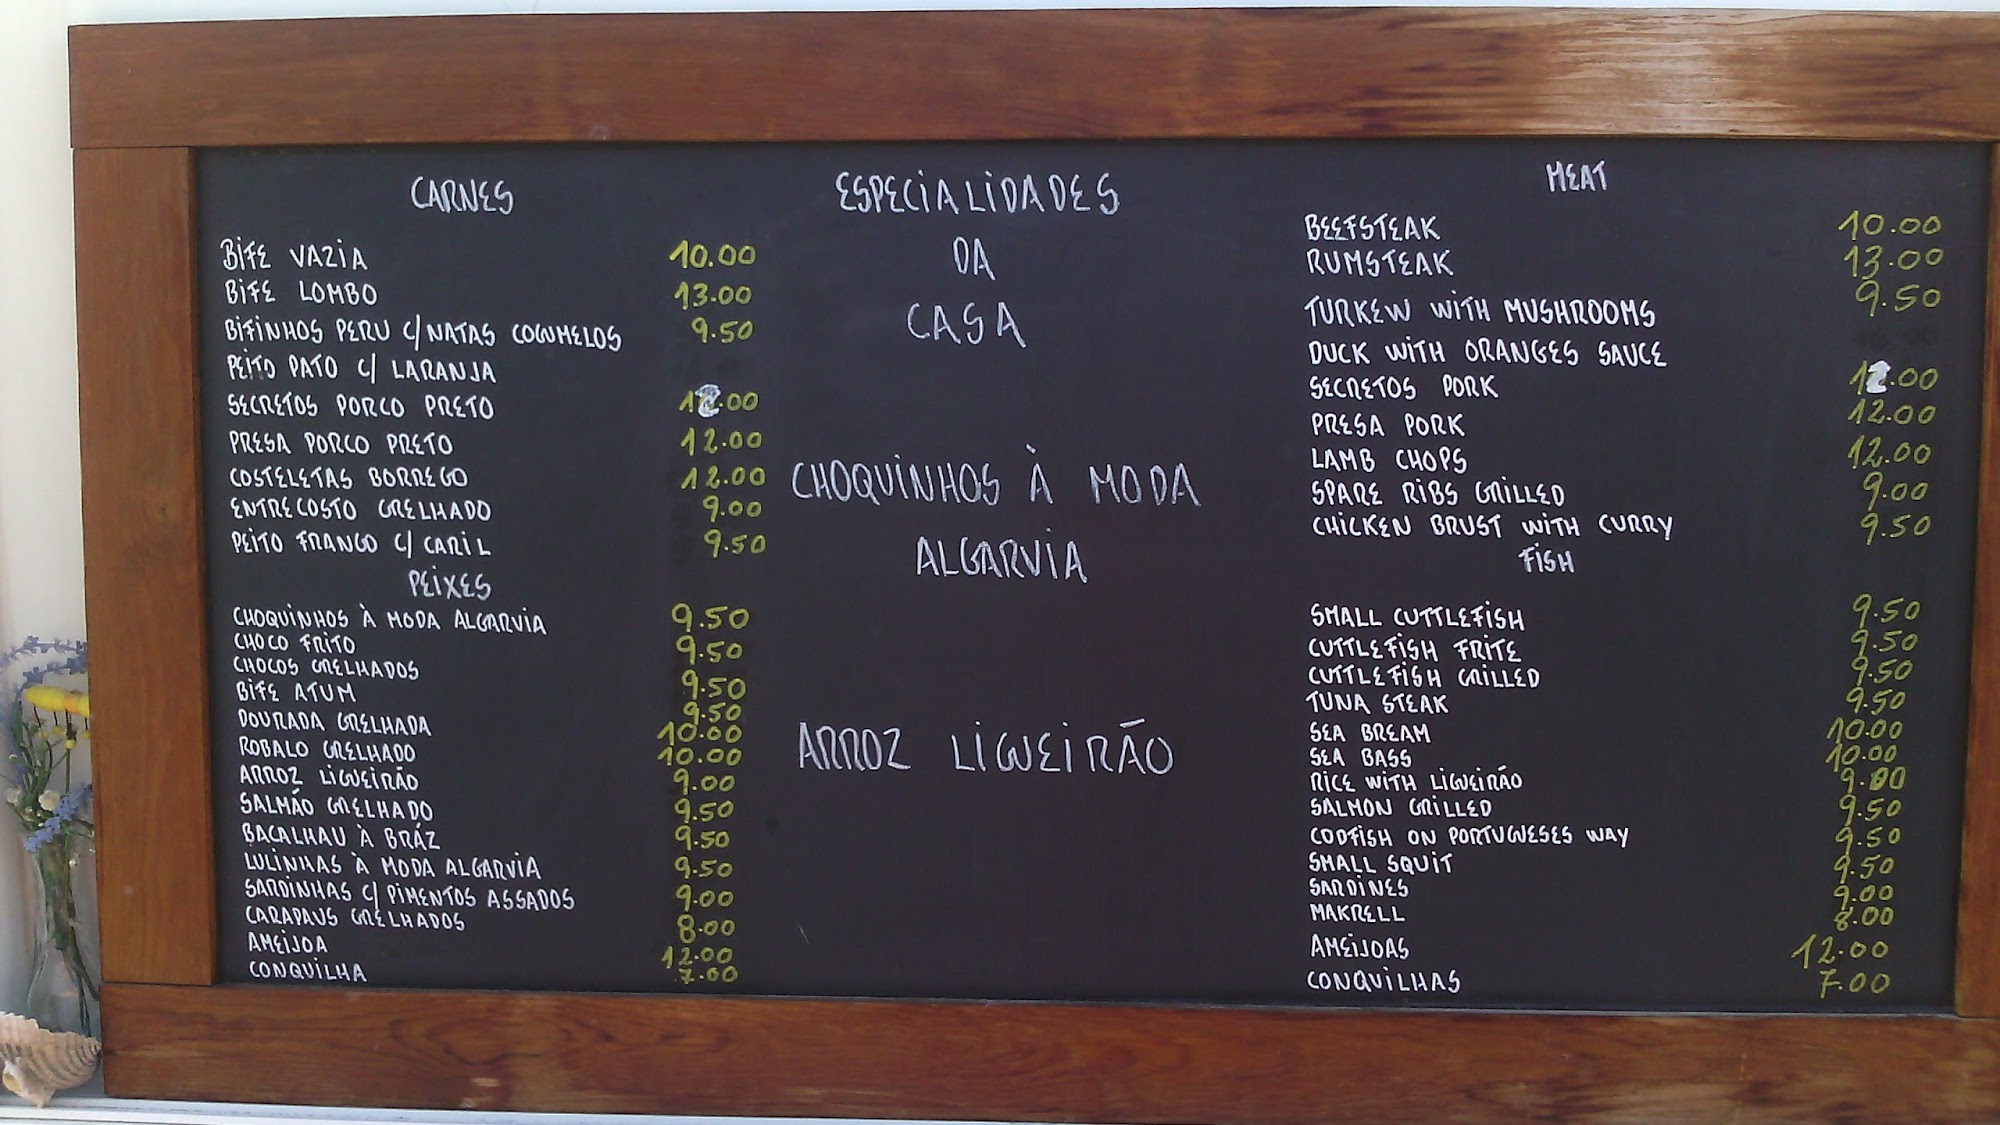 CARNES
BIFE VAZIA 10.00
BIFE LOMBO 13.00
BIFINHOS PERU C/NATAS COGUMELOS 9.50
PEITO PATO C/ LARANJA
SECRETOS PORCO PRETO 12.00
PRESA PORCO PRETO 12.00
COSTELETAS BORREGO 12.00
ENTRECOSTO GRELHADO 9.00
PEITO FRANGO C/ CARIL 9.50
PEIXES
CHOQUINHOS À MODA ALGARVIA 9.50
CHOCO FRITO 9.50
CHOCOS GRELHADOS 9.50
BIFE ATUM 9.50
DOURADA GRELHADA 10.00
ROBALO GRELHADO 10.00
ARROZ LIGUEIRÃO 9.00
SALMÃO GRELHADO 9.50
BACALHAU À BRÁZ 9.50
LULINHAS À MODA ALGARVIA 9.50
SARDINHAS C/ PIMENTOS ASSADOS 9.00
CARAPAUS GRELHADOS 8.00
AMEIJOA 12.00
CONQUILHA 7.00
ESPECIALIDADES
DA
CASA
CHOQUINHOS À MODA
ALGARVIA
ARROZ LIGUEIRÃO
MEAT
BEEFSTEAK 10.00
RUMSTEAK 13.00
TURKEW WITH MUSHROOMS 9.50
DUCK WITH ORANGES SAUCE
SECRETOS PORK 12.00
PRESA PORK 12.00
LAMB CHOPS 12.00
SPARE RIBS GRILLED 9.00
CHICKEN BRUST WITH CURRY 9.50
FISH
SMALL CUTTLEFISH 9.50
CUTTLEFISH FRITE 9.50
CUTTLEFISH GRILLED 9.50
TUNA STEAK 9.50
SEA BREAM 10.00
SEA BASS 10.00
RICE WITH LIGUEIRÃO 9.00
SALMON GRILLED 9.50
CODFISH ON PORTUGUESES WAY 9.50
SMALL SQUIT 9.50
SARDINES 9.00
MAKRELL 8.00
AMEIJOAS 12.00
CONQUILHAS 7.00